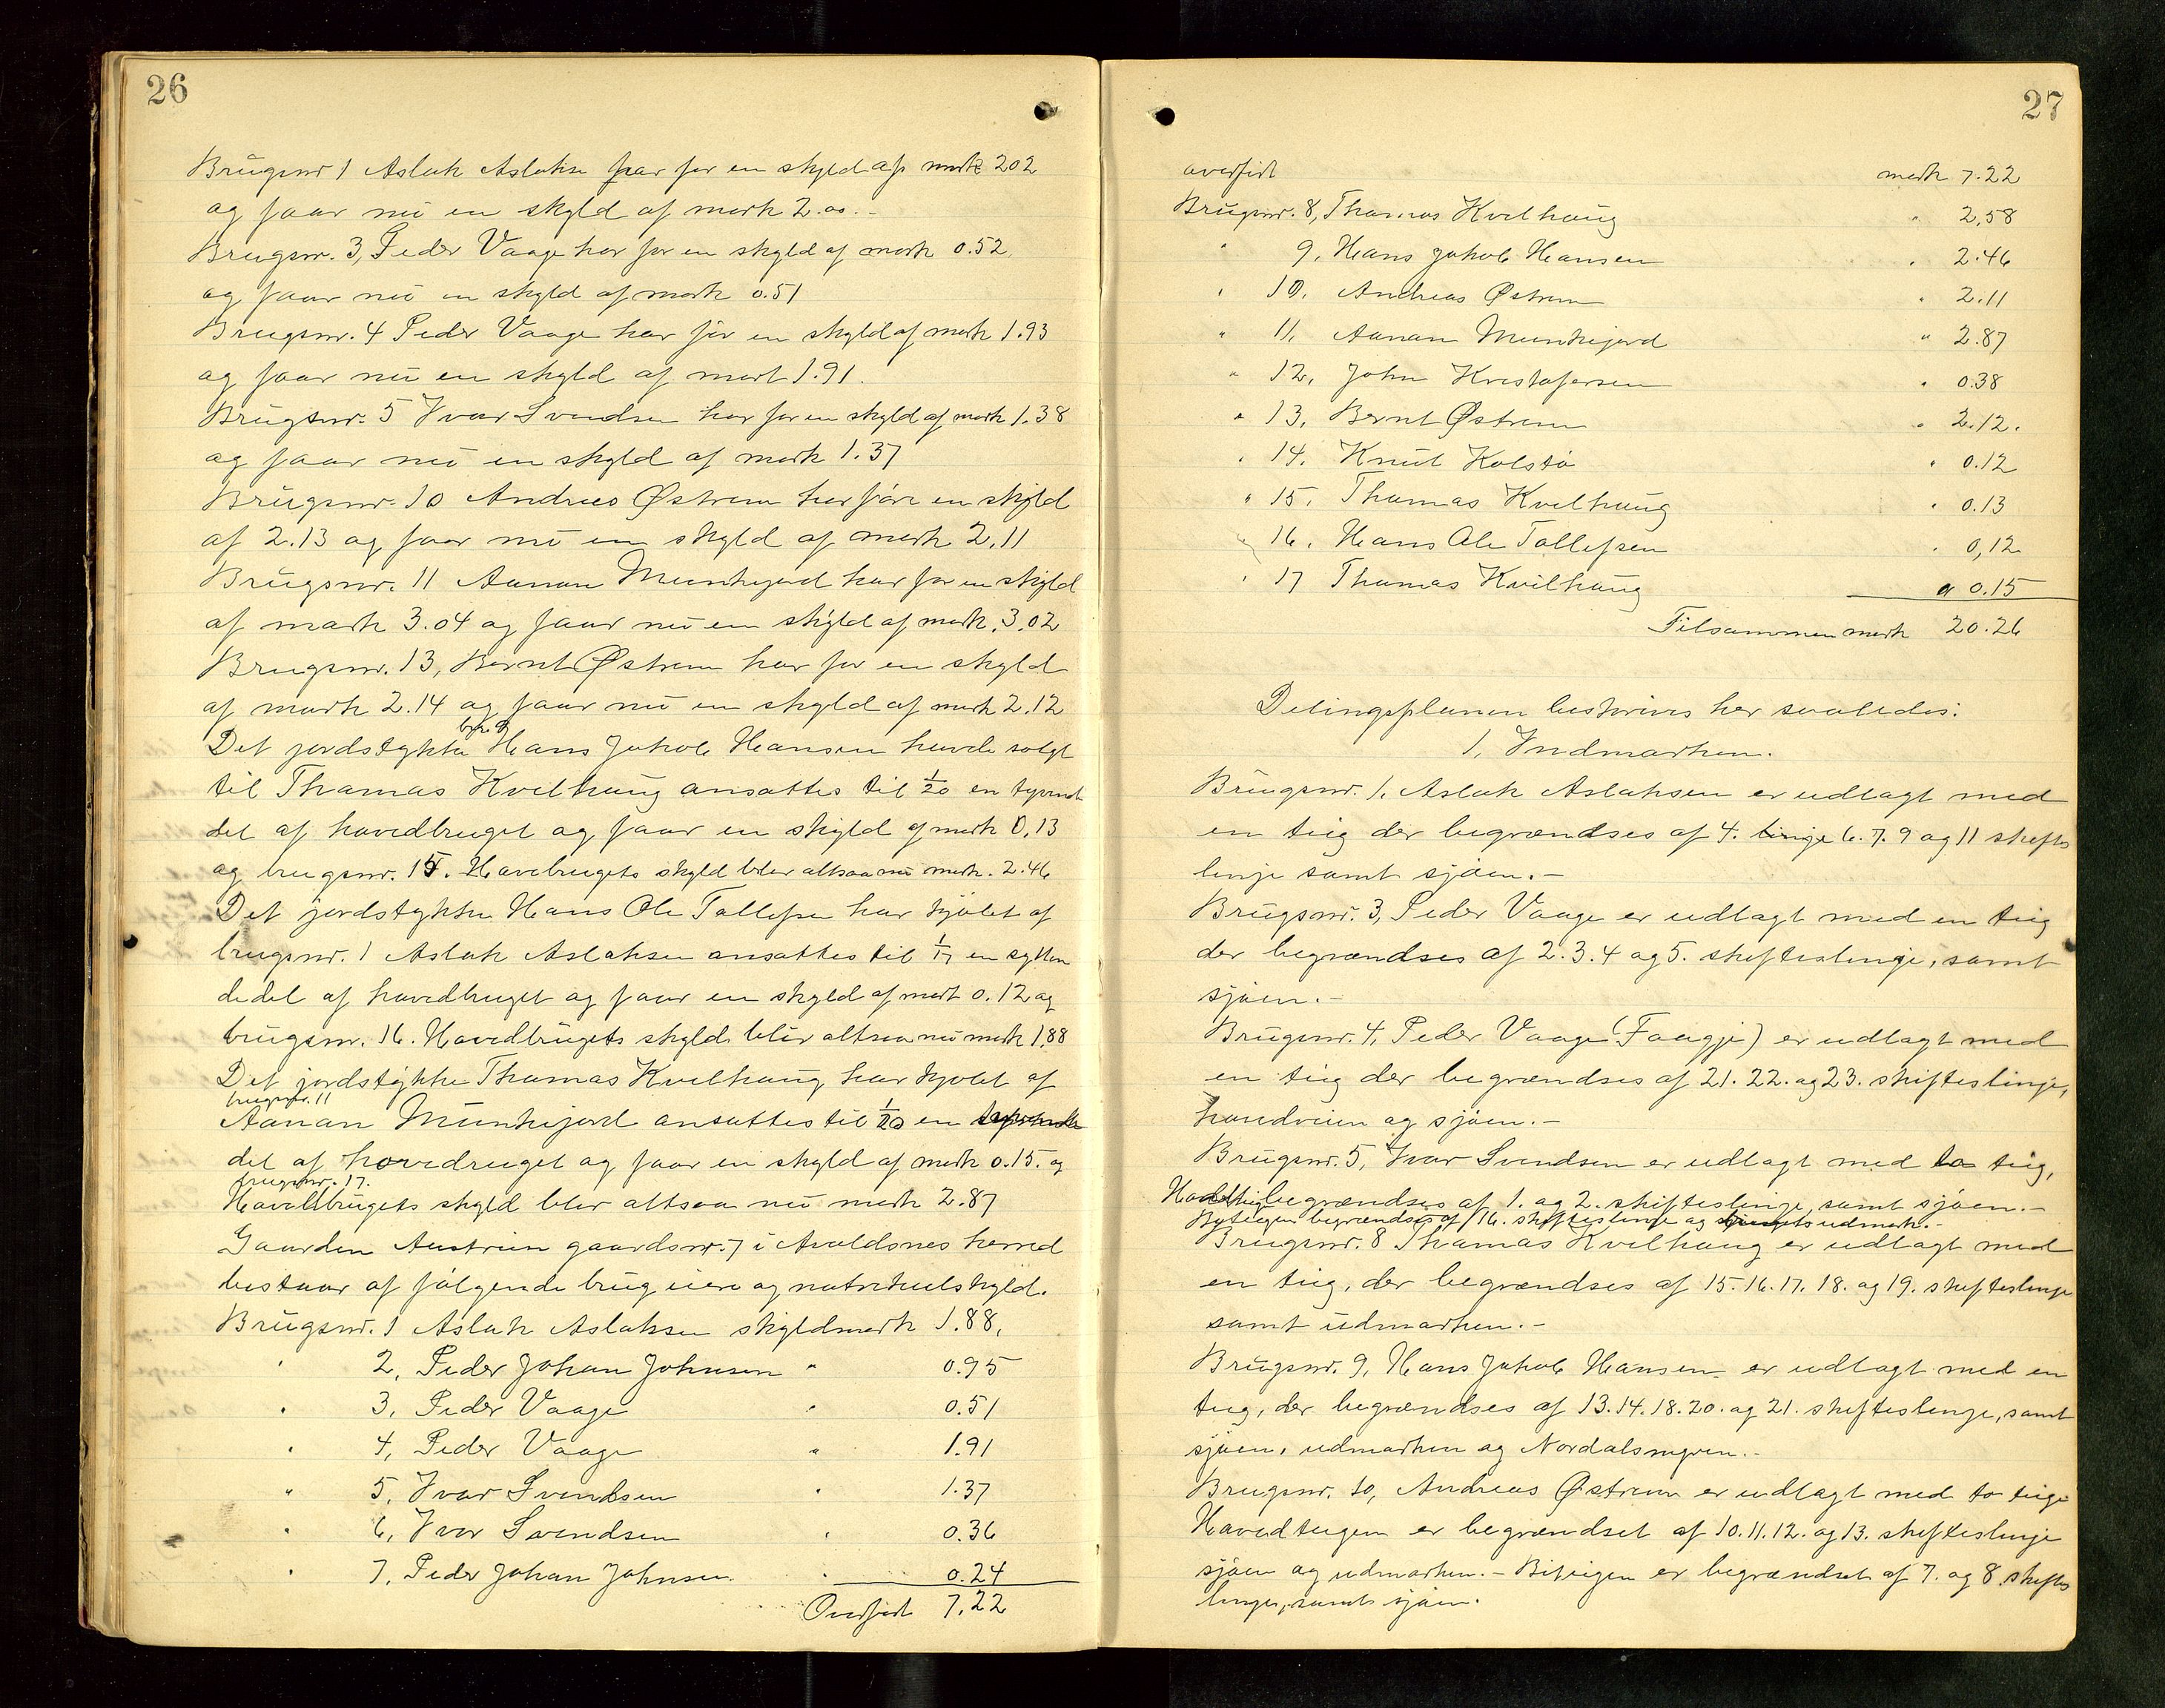 26
Brugsnr 1 Aslak Aslaksen har før en skyld af mark 202
og faar nu en skyld af mark 2.00.-
Brugsnr. 3, Peder Vaage har før en skyld af mark 0.52,
og faar nu en skyld af mark 0.51
Brugsnr. 4 Peder Vaage har før en skyld af mark 1.93
og faar nu en skyld af mark 1.91.
Brugsnr. 5 Ivar Svendsen har før en skyld af mark 1.38
og faar nu en skyld af mark 1.37
Brugsnr. 10 Andreas Østrem har før en skyld
af 2.13 og faar nu en skyld af mark 2.11
Brugsnr. 11 Aanan Munkejord har før en skyld
af mark 3.04 og faar nu en skyld af mark. 3.02
Brugsnr. 13, Bernt Østrem har før en skyld
af mark 2.14 og faar nu en skyld af mark 2.12
Det jordstykke Hans Jakob Hansen havde solgt
til Thomas Kvilhaug ansattes til 1/20 en tyvend
del af hovedbruget og faar en skyld af mark 0.13
og brugsnr. 15. Hovebrugets skyld blev altsaa nu mark. 2.46
Det jordstykke Hans Ole Tollefsen har kjøbt af
brugsnr. 1 Aslak Aslaksen ansattes til 1/17 en sytten
dedel af hovedbruget og faar en skyld af mark 0.12 og
brugsnr. 16. Hovedbrugets skyld blir altsaa nu mark 1.88
Det jordstykke Thomas Kvilhaug har kjøbt af
brugsnr. 11
Aanan Munkejord ansattes til 1/20 en
del af hovedruget og faar en skyld af mark 0.15. og
brugsnr. 17.
Hovedbrugets skyld blev altsaa nu mark 2.87
Gaarden Austrem gaardsnr. 7 i Avaldsnes herred
bestaar af følgende brug eiere og matrikulskyld.
Brugsnr. 1 Aslak Aslaksen skyldmark 1.88,
" 2, Peder Johan Johnsen " 0.95
" 3, Peder Vaage " 0.51
" 4, Peder Vaage " 1.91
" 5, Ivar Svendsen " 1.37
" 6, Ivar Svendsen " 0.36
" 7, Peder Johan Johnsen " 0.24
Overført 7.22
27
overført mark 7.22
Brugsnr. 8, Thomas Kvilhaug " 2,58
" 9. Hans Jakob Hansen " 2.46
" 10. Andreas Østrem " 2.11
" 11, Aanan Munkejord " 2.87
" 12, John Kristofersen " 0.38
" 13, Bernt Østrem " 2.12.
" 14. Knut Kolstø " 0.12
" 15, Thomas Kvilhaug " 0.13
" 16. Hans Ole Tollefsen " 0,12
" 17 Thomas Kvilhaug " 0.15
Tilsammen mark 20.26
Delingsplanen beskrives her saaledes:
1, Indmarken.
Brugsnr. 1. Aslak Aslaksen er udlagt med
en teig der begrændses af 4. 6. 7. 9 og 11 skifts
linje samt sjøen.-
Brugsnr. 3, Peder Vaage er udlagt med en teig
der begrændses af 2. 3. 4 og 5. skifteslinje, samt
sjøen.-
Brugsnr. 4, Peder Vaage (Faagje) er udlagt med
en teig der begrændses af 21. 22. og 23. skifteslinje,
hovedveien og sjøen.-
Brugsnr. 5, Ivar Svendsen er udlagt med to teig,
begrændses af 1. og 2. skifteslinje, samt sjøen.-
Byteigen begrændses af 16. skifteslinje og udmark.-
Brugsnr. 8 Thomas Kvilhaug er udlagt med
en teig, der begrændses af 15. 16. 17. 18. og 19. skifteslinje
samt udmarken.-
Brugsnr. 9, Hans Jakob Hansen er udlagt med en
teig, der begrændses af 13. 14. 18. 20. og 21. skifteslinje, samt
sjøen, udmarken og Nordalsmyren.-
Brugsnr. 10, Andreas Østrem er udlagt med to teige
Hovedteigen er begrændset af 10. 11. 12. og 13. skifteslinje
sjøen og udmarken. - Biteigen er begrændset af 7. og 8. skiftes
linje, samt sjøen.